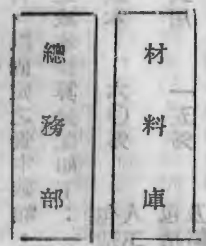 材料庫
總務部